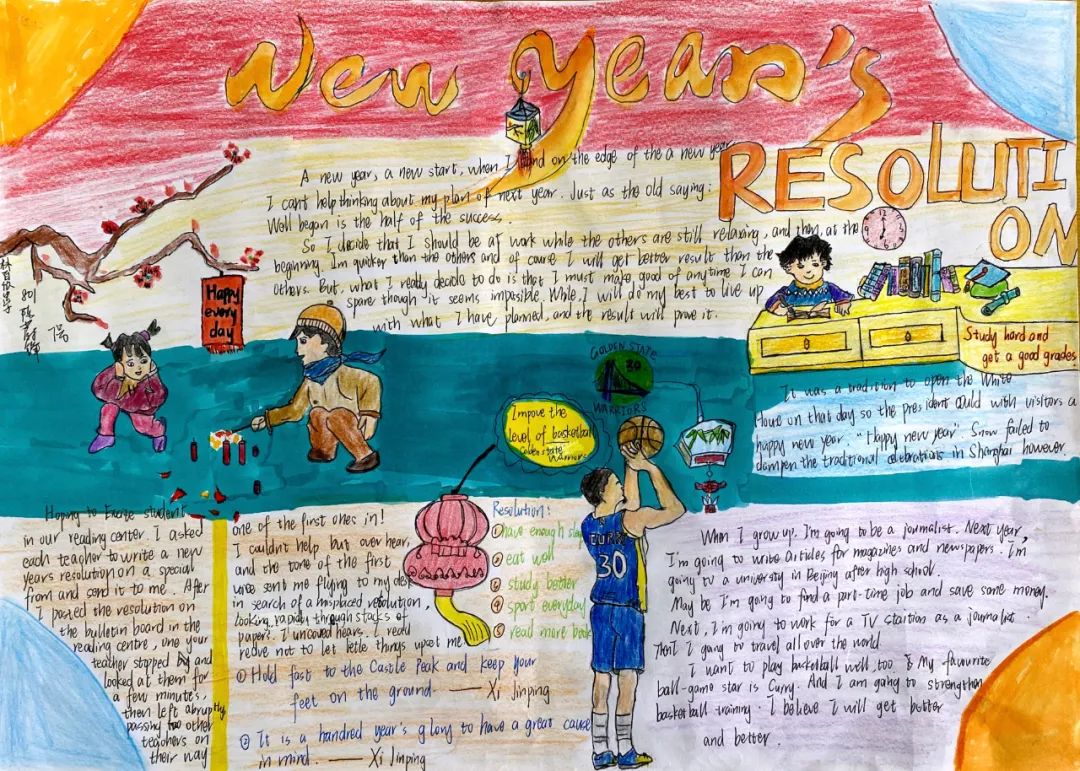 New Year's
RESOLUTI
ON
A new year, a new start, when I stand on the edge of the a new year
I can't help thinking about my plan of next year. Just as the old saying:
Well began is the half of the success.
So I decide that I should be at work while the others are still relaxing, and then, at the
beginning. I'm quicker than the others and of cause I will get better result than the
others. But, what I really decide to do is that I must make good of anytime I can
spare though it seems impossible. While I will do my best to live up
with what I have planned, and the result will prove it.
7号
Happy
every
day
Study hard and
get a good grades
GOLDEN STATE
30
WARRIORS
Impove the
level of basketball
Golden state
Warriors
It was a tradition to open the White
House on that day so the president could with visitors a
happy new year. "Happy new year". Snow failed to
dampen the traditional celebrations in Shanghai however.
Hoping to Excite student
in our reading center. I asked
each teacher to write a new
years resolution on a special
from and send it to me. After
I posted the resolution on
the bulletin board in the
reading centre, one your
teacher stopped by and
looked at them for
a few minutes,
then left abruptly
passing two other
teachers on
their way
one of the first ones in!
I couldn't help but over hear,
and the tone of the first
voice sent me flying to my desk
in search of a misplaced resolution,
Looking rapidly through stacks of
paper?. I uncoved hears. I read
reslve not to let little things upset me
① Hold fast to the Castle Peak and keep your
feet on the ground. —— Xi Jinping
② It is a hundred year's glory to have a great cause
in mind. —— Xi Jinping
Resolution:
① have enough sleep
② eat well
③ study better
④ sport everyday
⑤ read more book
CURRY
30
When I grow up. I'm going to be a journalist. Next year
I'm going to write articles for magazines and newspapers. I'm
going to a university in Beijing after high school.
May be I'm going to find a part-time job and save some money.
Next, I'm going to work for a TV staition as a journalist.
Then I going to travel all over the world.
I want to play basketball well too. My favourite
ball-game star is Curry. And I am gong to strengthen
basketball training. I believe I will get better
and better.